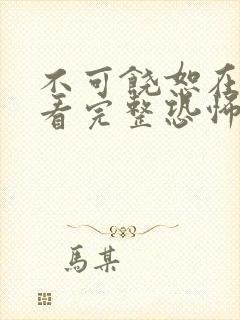 不可饶恕在
看完整恐怖
馬某